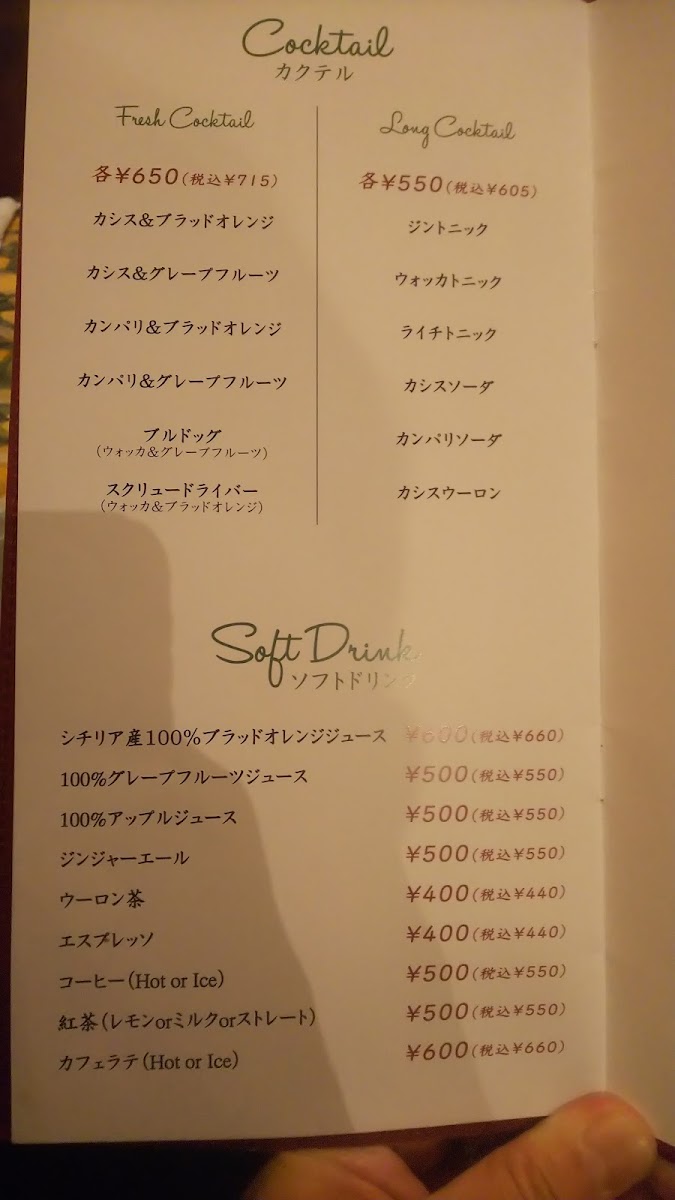 Cocktail
カクテル
Fresh Cocktail
各¥650(税込¥715)
カシス&ブラッドオレンジ
カシス&グレープフルーツ
カンパリ&ブラッドオレンジ
カンパリ&グレープフルーツ
ブルドッグ
(ウォッカ&グレープフルーツ)
スクリュードライバー
(ウォッカ&ブラッドオレンジ)
Long Cocktail
各¥550(税込¥605)
ジントニック
ウォッカトニック
ライチトニック
カシスソーダ
カンパリソーダ
カシスウーロン
Soft Drink
ソフトドリンク
シチリア産100%ブラッドオレンジジュース ¥600(税込¥660)
100%グレープフルーツジュース ¥500(税込¥550)
100%アップルジュース ¥500(税込¥550)
ジンジャーエール ¥500(税込¥550)
ウーロン茶 ¥400(税込¥440)
エスプレッソ ¥400(税込¥440)
コーヒー(Hot or Ice) ¥500(税込¥550)
紅茶(レモンorミルクorストレート) ¥500(税込¥550)
カフェラテ(Hot or Ice) ¥600(税込¥660)